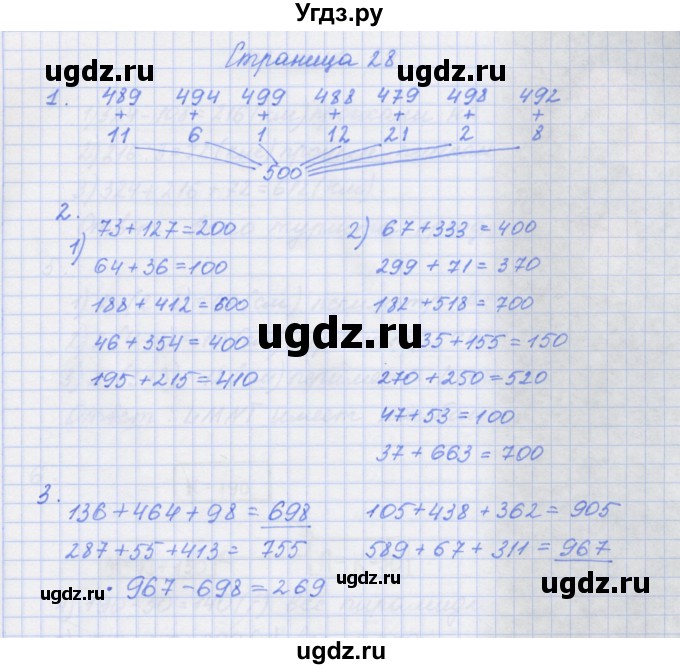 Угдз.ру
Страница 28
ugdz.ru ugdz.ru ugdz.ru
1. 489 494 499 488 479 498 492
+ + + + + + +
11 6 1 12 21 2 8
500
2.
1) 73+127=200
64+36=100
188+412=600
46+354=400
195+215=410
2) 67+333=400
299+71=370
182+518=700
35+155=150
270+250=520
47+53=100
37+663=700
ugdz.ru
3.
136+464+98=698
287+55+413=755
105+438+362=905
589+67+311=967
967-698=269
ugdz.ru ugdz.ru ugdz.ru
ugdz.ru